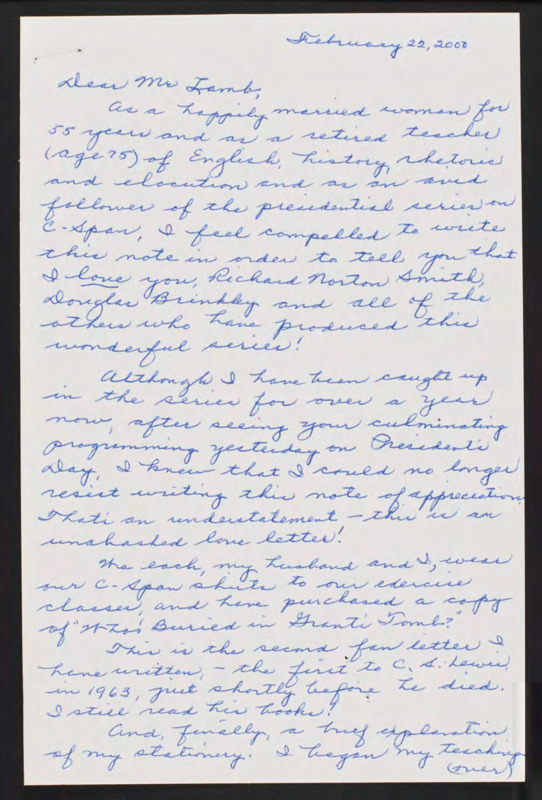 February 22, 2000
Dear Mr Lamb,
As a happily married woman for
55 years and as a retired teacher
(age 75) of English, history, rhetoric
and elocution and as an avid
follower of the presidential series on
C-Span, I feel compelled to write
this note in order to tell you that
I love you, Richard Norton Smith,
Douglas Brinkley and all of the
others who have produced this
wonderful series!
Although I have been caught up
in the series for over a year
now, after seeing your culminating
programming yesterday on President's
Day, I knew that I could no longer
resist writing this note of appreciation.
That's an understatement - this is an
unabashed love letter!
We each, my husband and I, wear
our C-Span shirts to our exercise
classes, and have purchased a copy
of "Who's Buried in Grant's Tomb?"
This is the second fan letter I
have written, - the first to C. S. Lewis
in 1963, just shortly before he died.
I still read his books!
And, finally, a brief explanation
of my stationery. I began my teaching
(over)